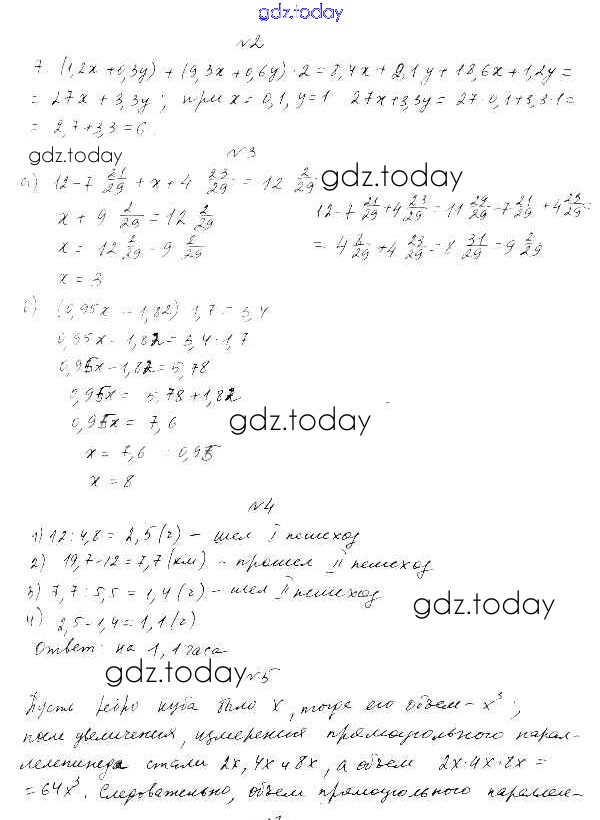 gdz.today
№2
7. (1,2x + 0,3y) + (9,3x + 0,6y) · 2 = 8,4x + 2,1y + 18,6x + 1,2y =
= 27x + 3,3y; при x = 0,1, y = 1 27x + 3,3y = 27 · 0,1 + 3,3 · 1 =
= 2,7 + 3,3 = 6.
gdz.today
№3
gdz.today
а) 12 - 7 21/29 + x + 4 23/29 = 12 2/29
12 - 7 21/29 + 4 23/29 = 11 29/29 - 7 21/29 + 4 23/29 =
x + 9 2/29 = 12 2/29
= 4 8/29 + 4 23/29 = 8 31/29 = 9 2/29
x = 12 2/29 - 9 2/29
x = 3
б) (0,95x - 1,82) 1,7 = 3,4
0,95x - 1,82 = 3,4 · 1,7
0,95x - 1,82 = 5,78
0,95x = 5,78 + 1,82
0,95x = 7,6
gdz.today
x = 7,6 : 0,95
x = 8
№4
1) 12 : 4,8 = 2,5 (ч) - шел I пешеход
2) 19,7 - 12 = 7,7 (км) - прошел II пешеход
3) 7,7 : 5,5 = 1,4 (ч) - шел II пешеход
gdz.today
4) 2,5 - 1,4 = 1,1 (ч)
Ответ: на 1,1 часа
gdz.today
№5
Пусть ребро куба было x, тогда его объем - x³;
после увеличения, измерения прямоугольного парал-
лелепипеда стали 2x, 4x и 8x, а объем 2x · 4x · 8x =
= 64x³. Следовательно, объем прямоугольного параллеле-